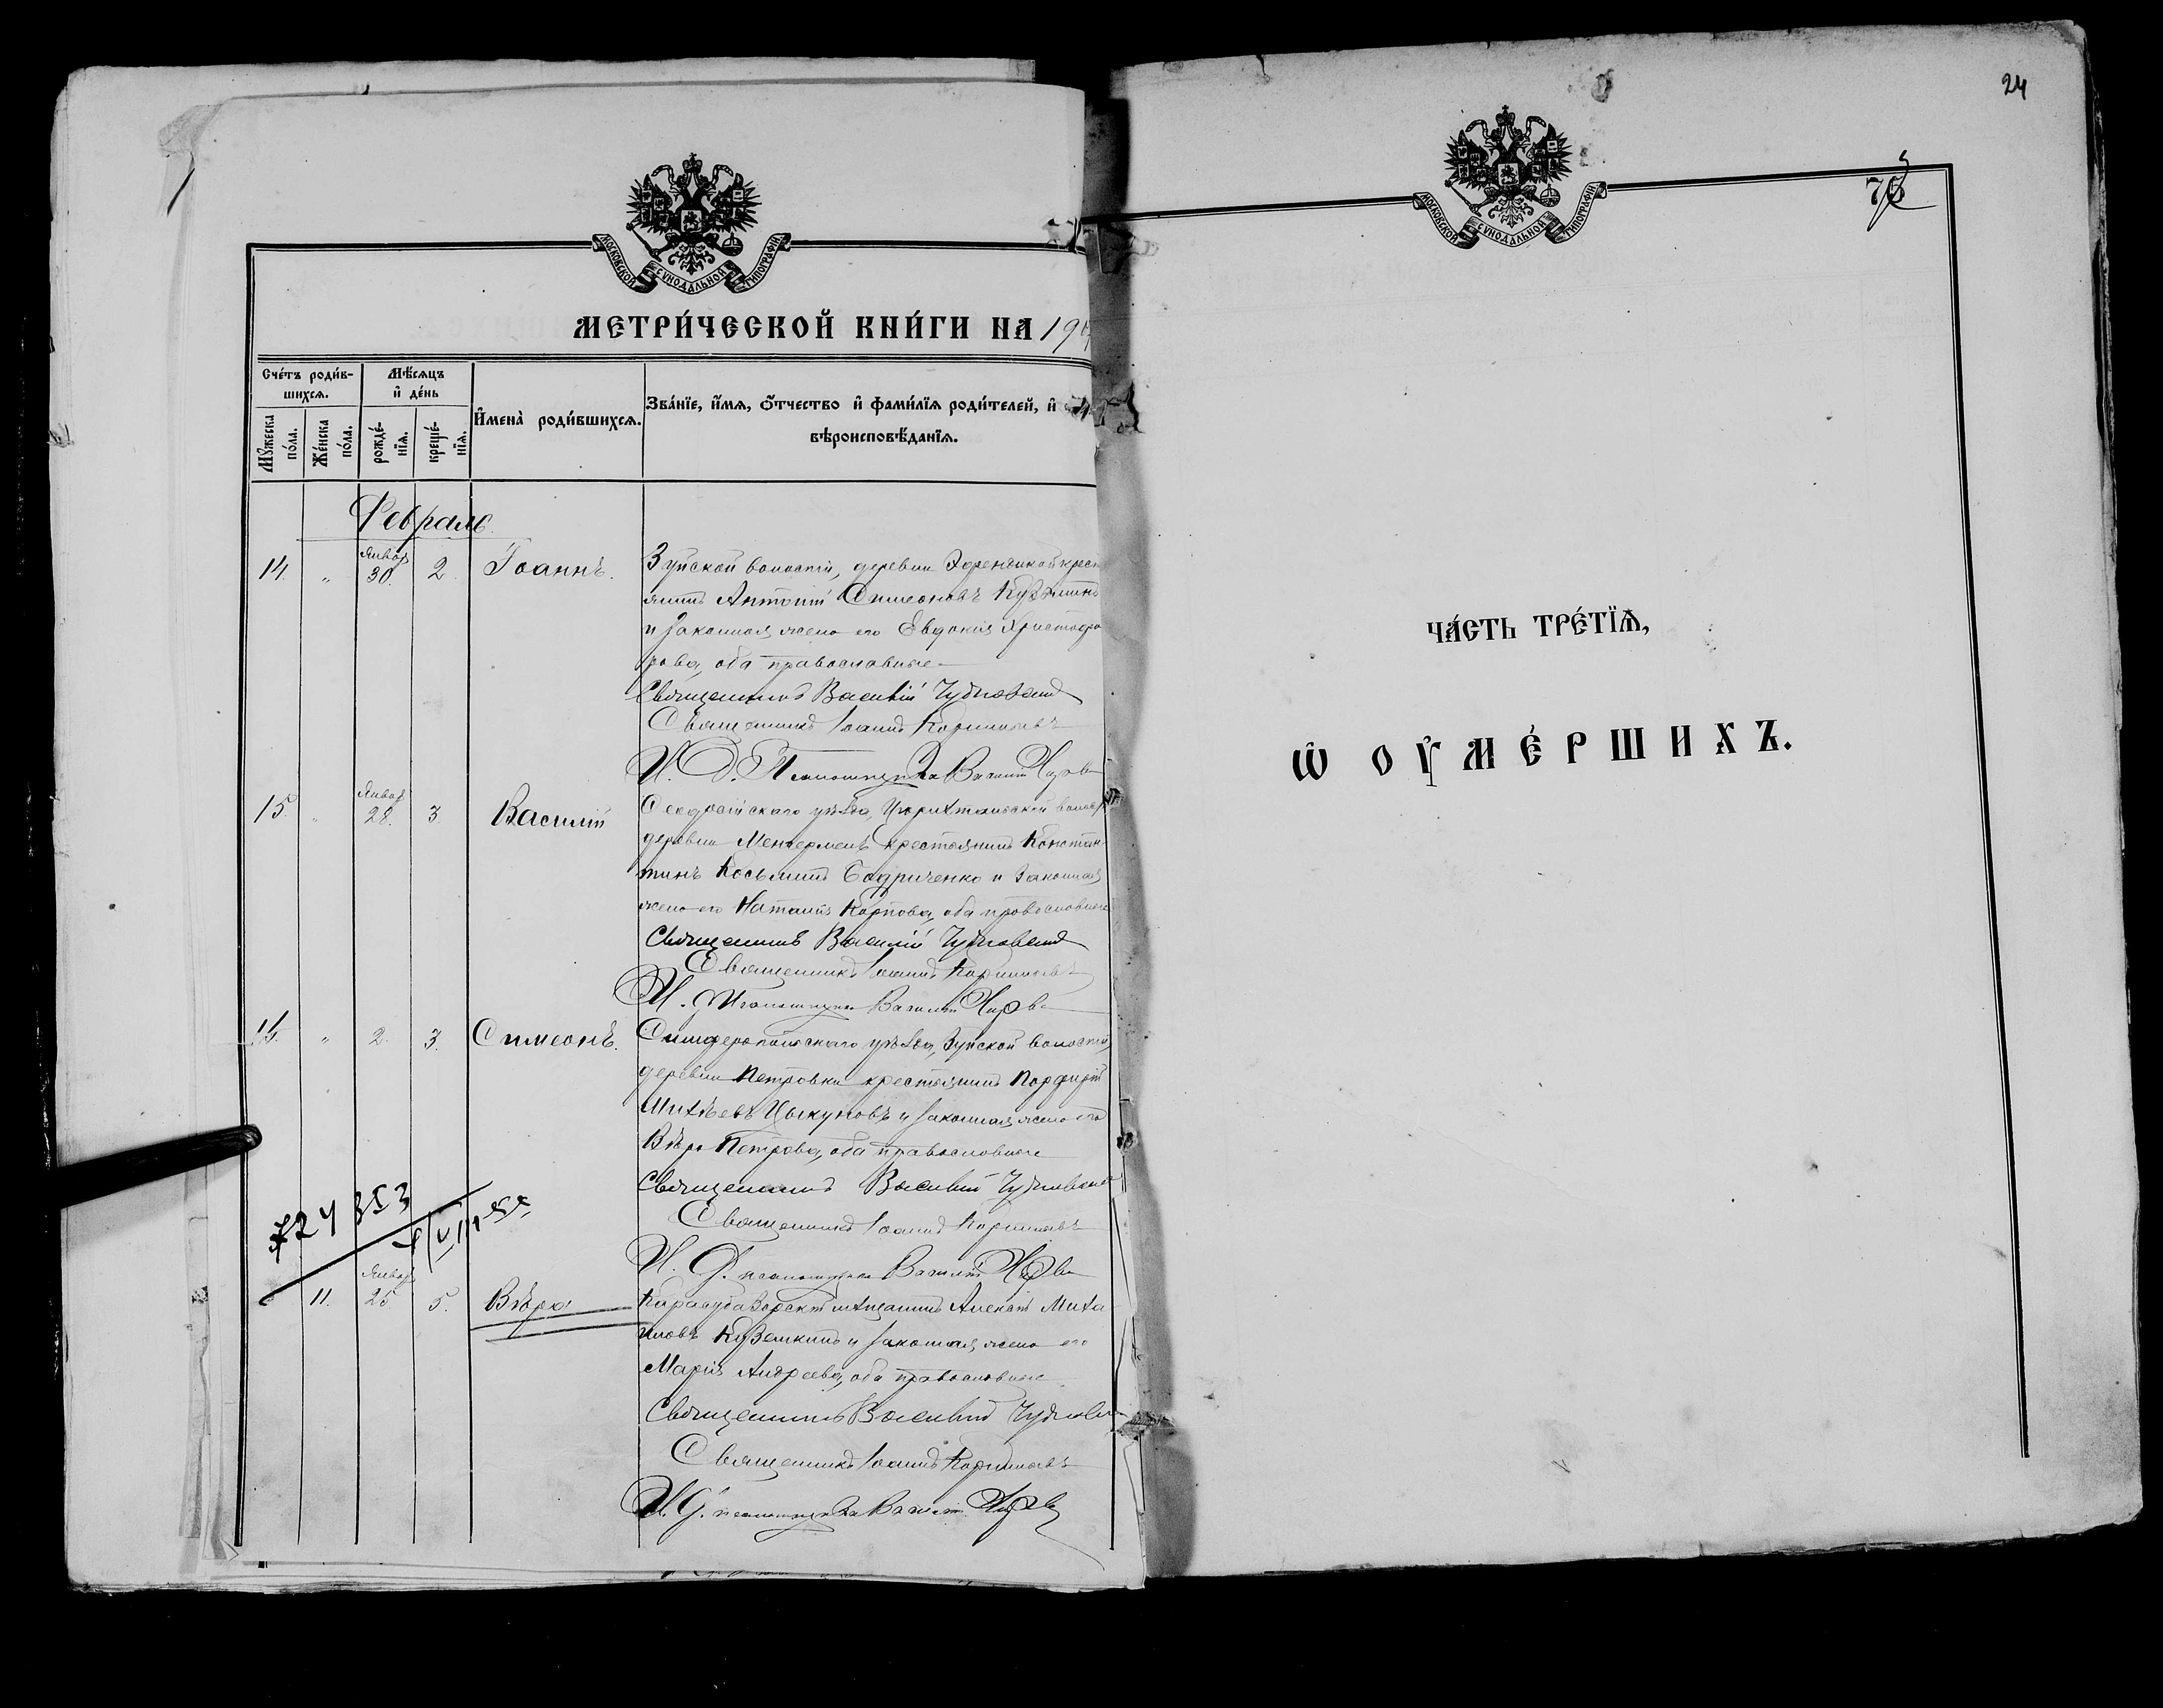 МОСКОВСКОЙ СѴНОДАЛЬНОЙ ТИПОГРАФІИ
МЕТРИ́ЧЕСКОЙ КНИ́ГИ НА 190
Сче́тъ роди́в-
шихсѧ.
Мѣ́сѧцъ
и҆ де́нь
Мꙋ́жеска
по́ла.
Же́нска
по́ла.
рожде́-
нїѧ.
креще́-
нїѧ.
И҆мена̀ роди́вшихсѧ.
Зва́нїе, и҆́мѧ, ѻ҆́тчество и҆ фами́лїѧ роди́телей, и҆
вѣроисповѣ́данїѧ.
Февраль.
14. " Январ 30. 2. Іоаннъ.
Зуйской волости, деревни
Антоній Симеоновъ Кузьминъ
и законная жена его Евдокія Христофо
рова, оба православные
Священникъ Василій
Священникъ Іоаннъ
И. Д. Псаломщика Василій
15. " Январ 28. 3. Василій
Ѳеодосійскаго уѣзда,
деревни крестьянинъ Констан
тинъ Косьминъ Бодриченко и законная
жена его Наталія Карпова, оба православные
Священникъ Василій
Священникъ Іоаннъ
И. Д. Псаломщика Василій
" 2. 3. Симеонъ.
Симферопольскаго уѣзда, Зуйской волости,
деревни Петровки крестьянинъ Порфирій
Михѣевъ Цыкуновъ и законная жена его
Вѣра Петрова, оба православные
Священникъ Василій
Священникъ Іоаннъ
И. Д. псаломщика Василій
724353
11. Январ 25. 5. Вѣра
Карасубазарскій мѣщанинъ Алексѣй Миха
иловъ Куземкинъ и законная жена его
Марія Андреева, оба православные
Священникъ Василій
Священникъ Іоаннъ
И. Д. псаломщика Василій
24
МОСКОВСКОЙ СѴНОДАЛЬНОЙ ТИПОГРАФІИ
ЧА́СТЬ ТРЕ́ТЇѦ,
Ѡ҆ ОУ҆МЕ́РШИХЪ.